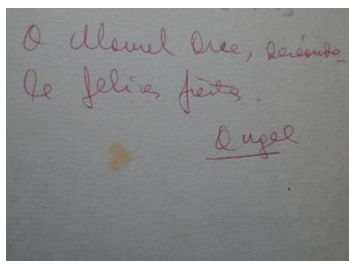 A Manuel Arce, deseándo-
le felices fiestas.
Angel